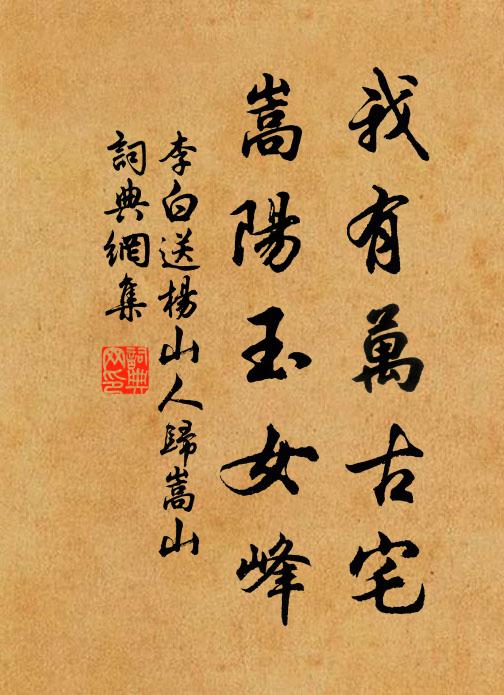 我有萬古宅
嵩陽玉女峰
李白送楊山人歸嵩山
詞典網集
詞典网印